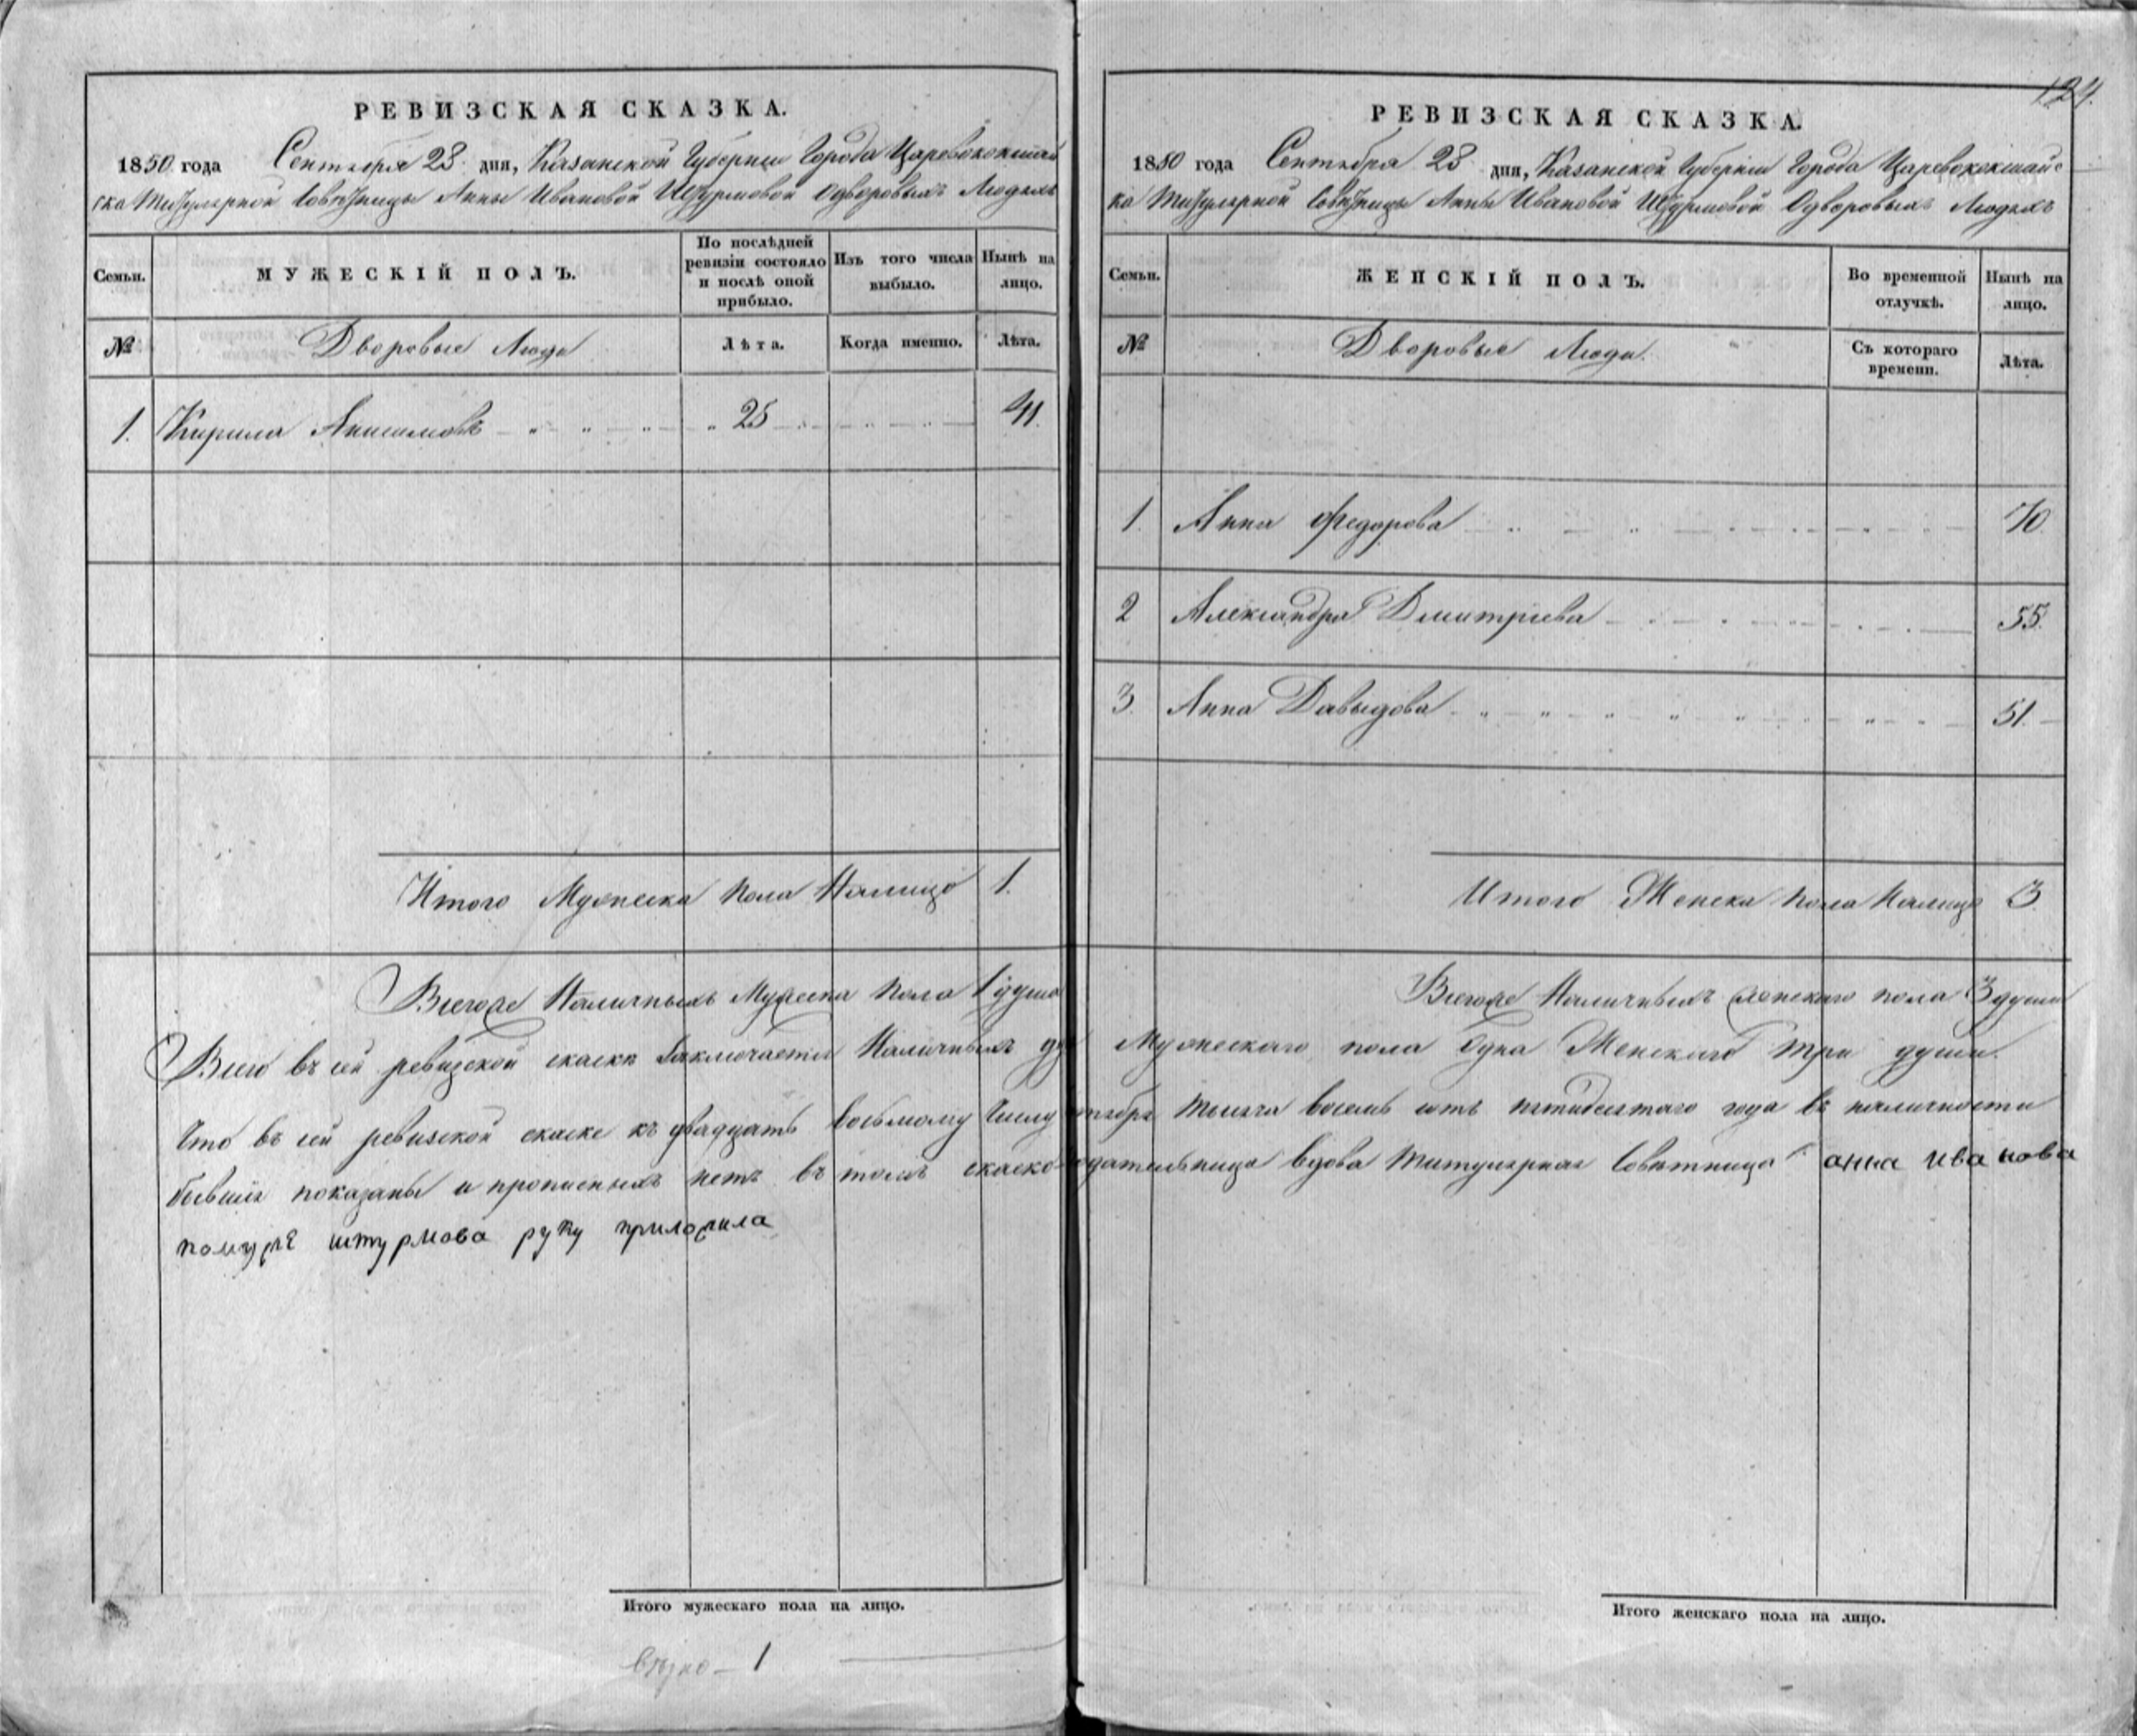 РЕВИЗСКАЯ СКАЗКА.
1850 года Сентября 28 дня, Казанской Губернии Города Царевококшай
ска Титулярной Советницы Анны Ивановой Штурмовой О дворовыхъ Людяхъ
Семьи.
МУЖЕСКІЙ ПОЛЪ.
По послѣдней ревизіи состояло и послѣ оной прибыло.
Изъ того числа выбыло.
Нынѣ на лицо.
№
Дворовые Люди
Лѣта.
Когда именно.
Лѣта.
1. Кирила Анисимовъ 25 41.
Итого Мужеска пола Налицо 1.
Всегоже Наличныхъ Мужеска пола 1 душа
124.
РЕВИЗСКАЯ СКАЗКА.
1850 года Сентября 28 дня, Казанской Губерніи Города Царевококшайс
ка Титулярной Советницы Анны Ивановой Штурмовой О дворовыхъ Людяхъ
Семьи.
ЖЕНСКІЙ ПОЛЪ.
Во временной отлучкѣ.
Нынѣ на лицо.
№
Дворовые Люди.
Съ котораго времени.
Лѣта.
1. Анна Федорова 70.
2 Александра Дмитріева 55.
3. Анна Давыдова 51.
Итого Женска пола Налицо 3.
Всегоже Наличныхъ женскаго пола 3 души
Всего въ сей ревизской скаске Заключается Наличныхъ ду Мужескаго пола Одна Женскаго три души.
Что въ сей ревизской скаске къ двадцать восьмому Числу тысяча восемь сотъ пятидесятаго года въ наличности
бывшія показаны и прописныхъ нетъ въ томъ вдова титулярная Советница анна иванова
помужѣ штурмова руку приложила
Итого мужескаго пола на лицо.
Итого женскаго пола на лицо.
1